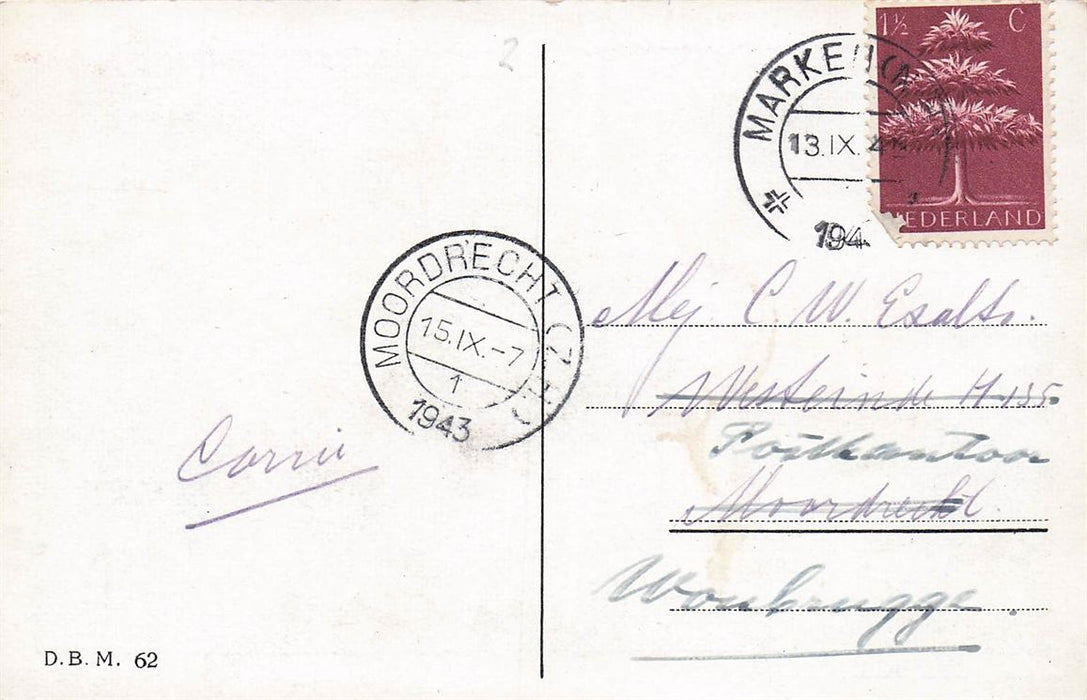 2
1½ C
NEDERLAND
MARKEN (N
13.IX.4
194
MOORDRECHT (Z.H.)
15.IX.-7
1
1943
Mej. C. W.
Westeinde H 135
Postkantoor
Moordrecht.
Woubrugge.
Corrie
D.B.M. 62